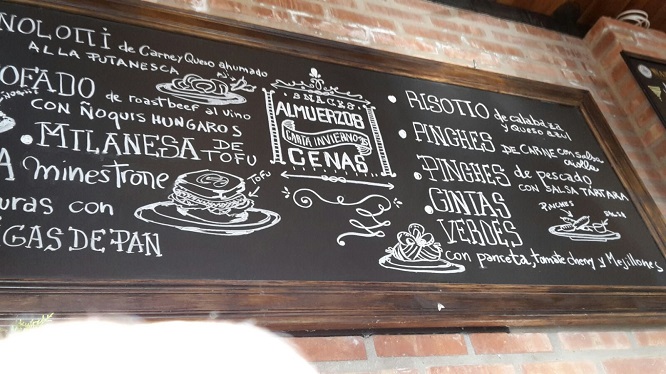 NOLOTTI de Carne y Queso ahumado
ALLA PUTANESCA
OFADO de roastbeef al vino
CON ÑOQUIS HUNGAROS
• MILANESA DE TOFU
TOFU
A minestrone
uras con
IGAS DE PAN
SNACKS
ALMUERZOS
CARTA INVIERNO
CENAS
• RISOTTO de calabaza y queso azul
• PINCHES DE CARNE con salsa criolla
• PINCHES de pescado CON SALSA TARTARA
• CINTAS VERDES
con panceta, tomate cherry y Mejillones